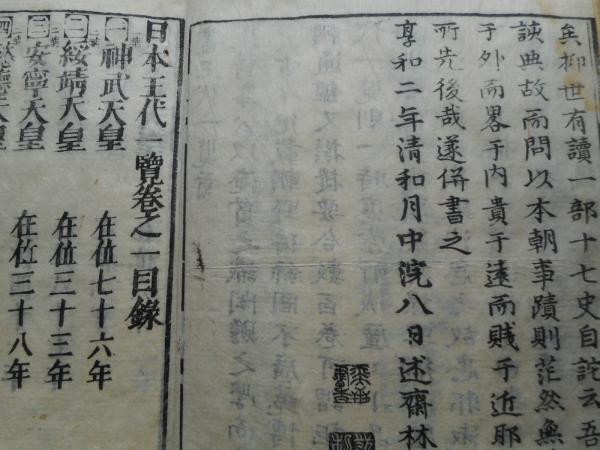 矣抑世有讀一部十七史自詫云吾
諛典故而問以本朝事蹟則茫然無
于外而畧于内貴于遠而賤于近耶
所先後哉遂併書之
享和二年清和月中浣八日述齋林
日本王代一覽卷之一目錄
一 神武天皇 在位七十六年
二 綏靖天皇 在位三十三年
三 安寧天皇 在位三十八年
四 天皇